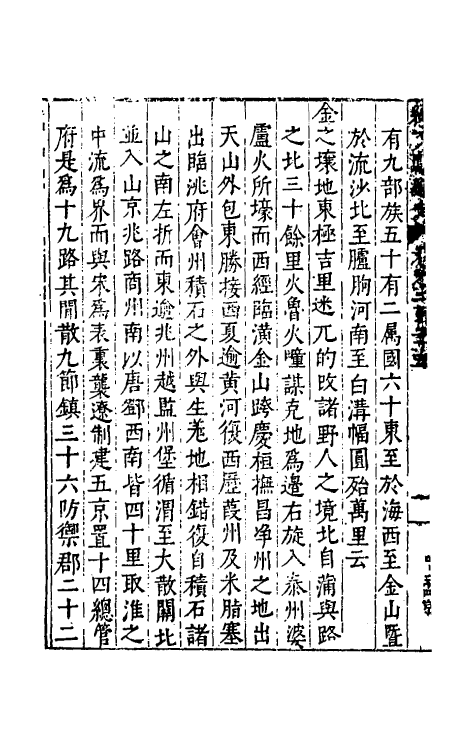 有九部族五十有二属國六十東至於海西至金山暨
於流沙北至臚朐河南至白溝幅圓殆萬里云
金之壤地東極吉里迷兀的攺諸野人之境北自蒲與路
之北三十餘里火魯火疃謀克地爲邉右旋入泰州婆
盧火所壕而西經臨潢金山跨慶桓撫昌净州之地出
天山外包東勝接西夏逾黄河復西歷葭州及米脂塞
出臨洮府會州積石之外與生羌地相錯復自積石諸
山之南左折而東逾洮州越监州堡循渭至大散關北
並入山京兆路商州南以唐鄧西南皆四十里取淮之
中流爲界而與宋爲表裏襲遼制建五京置十四總管
府是爲十九路其閒散九節鎮三十六防禦郡二十二